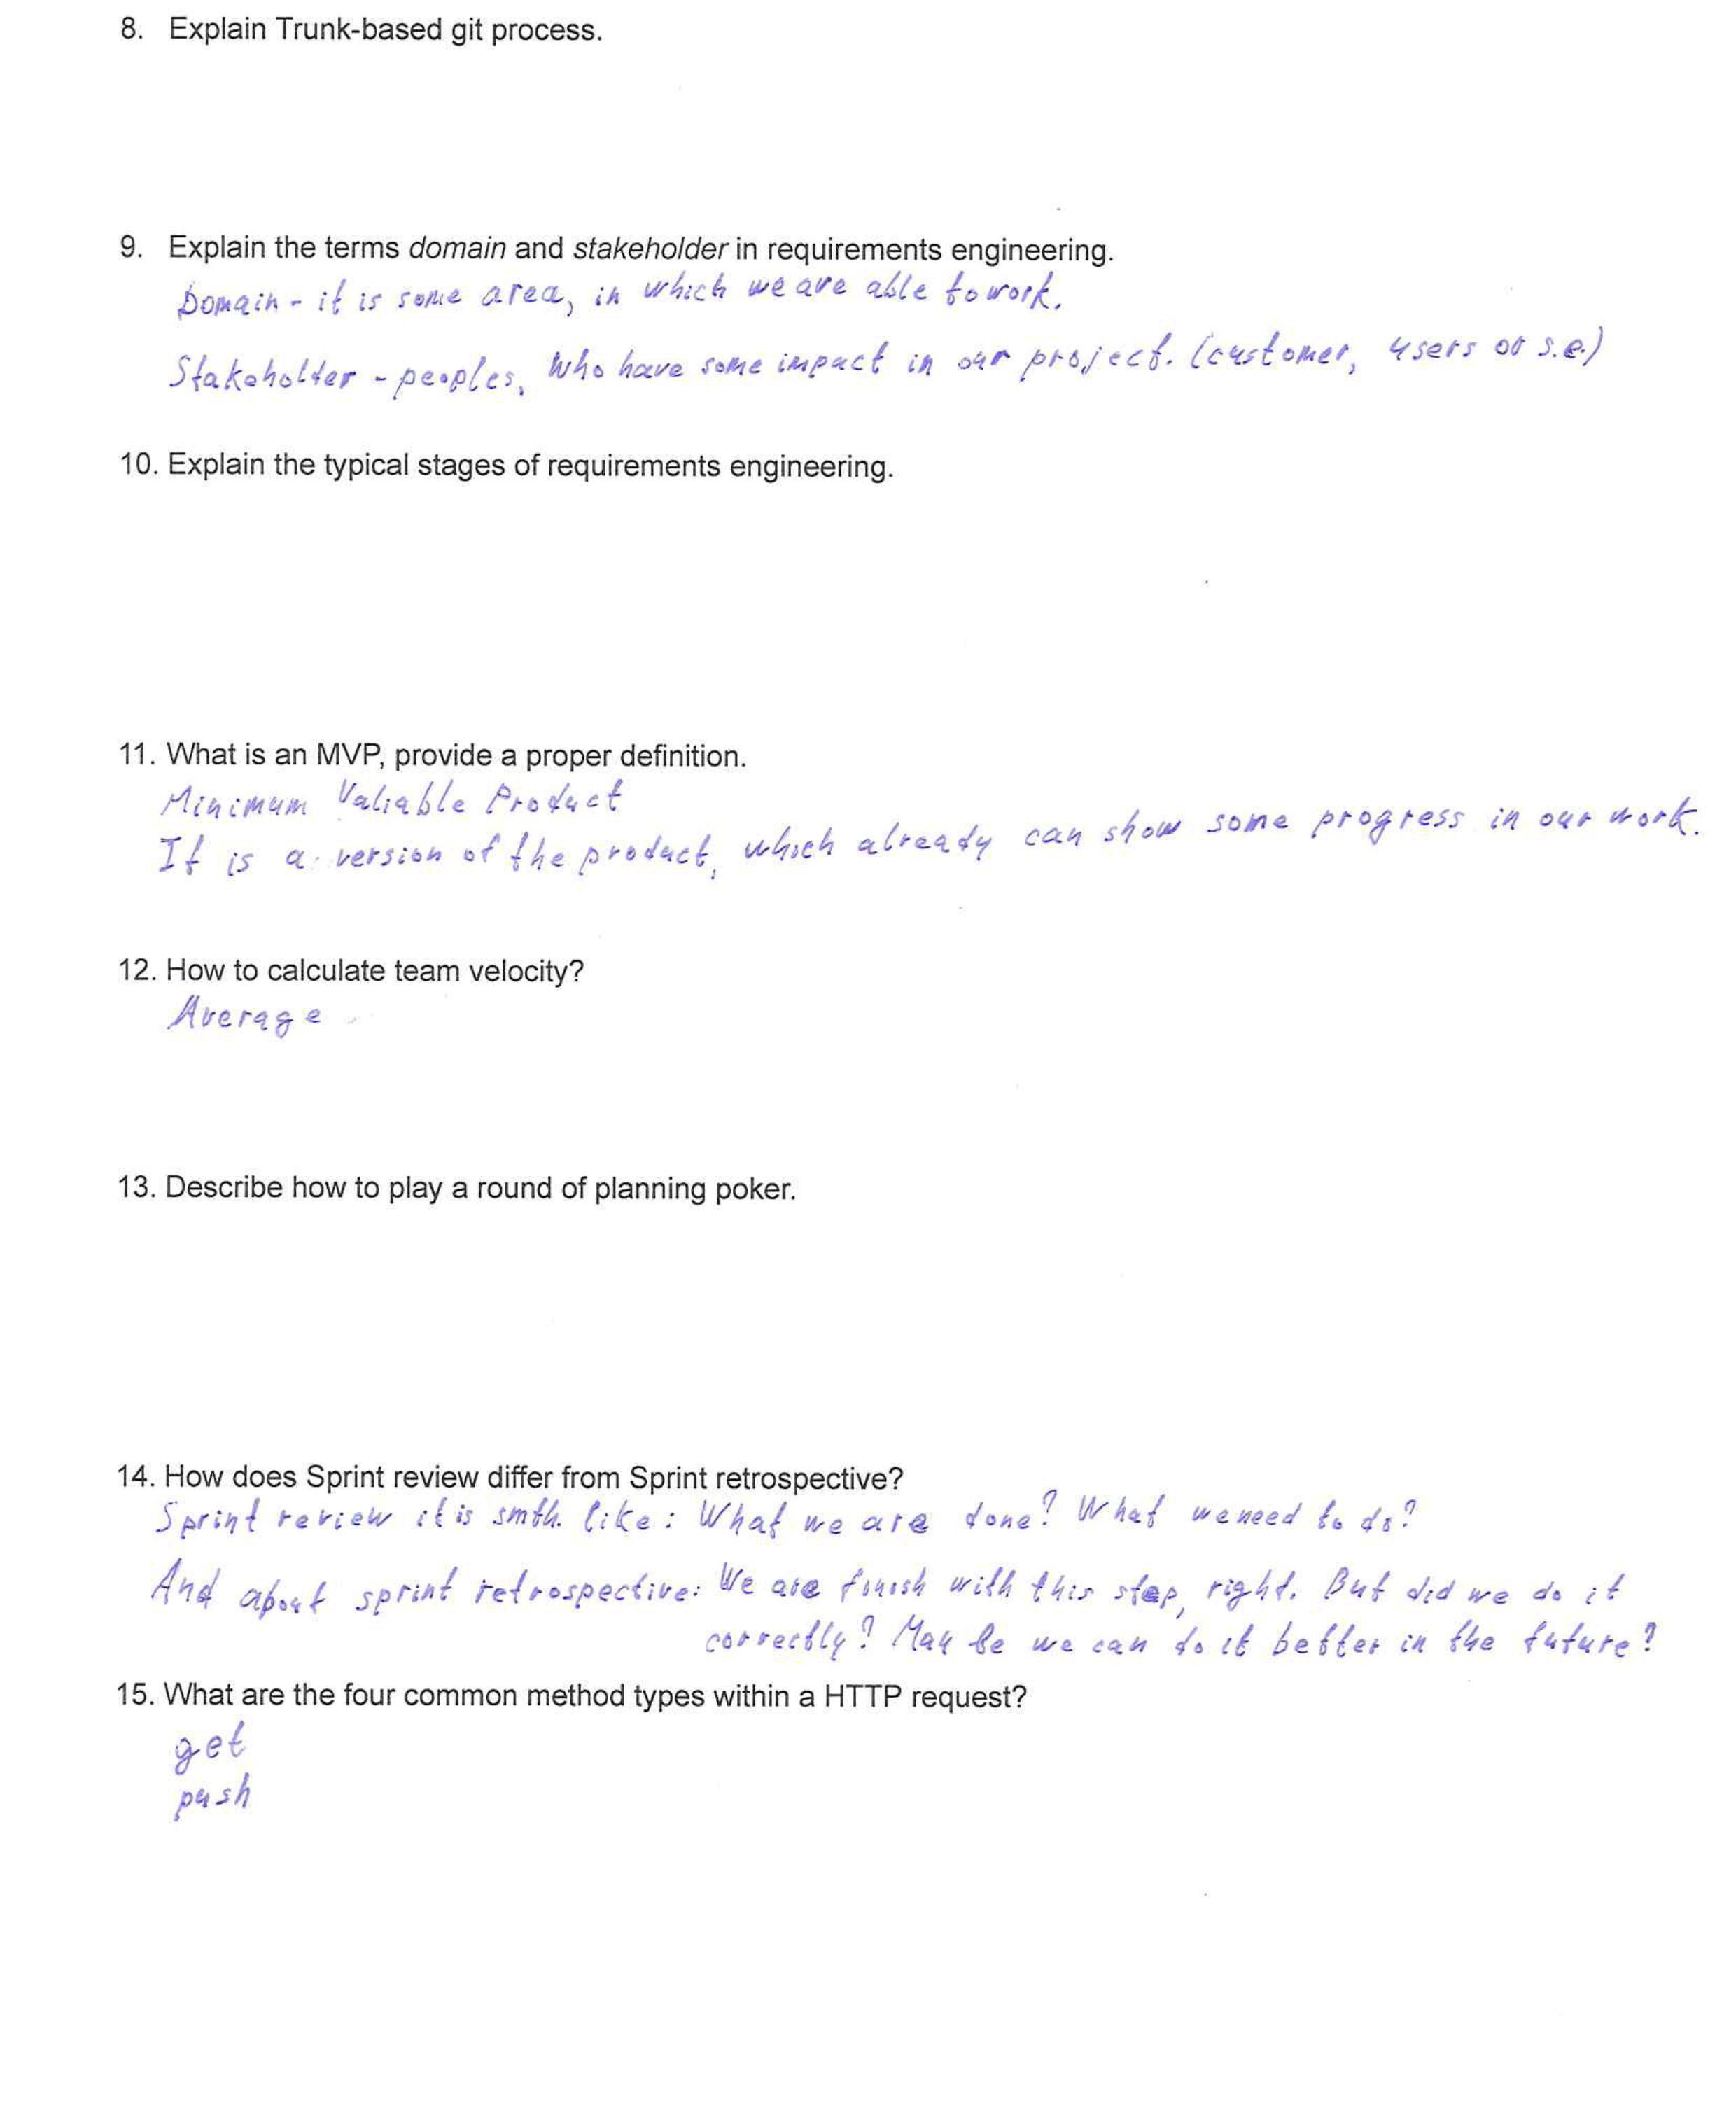 8. Explain Trunk-based git process.
9. Explain the terms domain and stakeholder in requirements engineering.
Domain - it is some area, in which we are able to work.
Stakeholder - peoples, who have some impact in our project. (customer, users or s.e.)
10. Explain the typical stages of requirements engineering.
11. What is an MVP, provide a proper definition.
Minimum Valiable Product
It is a version of the product, which already can show some progress in our work.
12. How to calculate team velocity?
Average
13. Describe how to play a round of planning poker.
14. How does Sprint review differ from Sprint retrospective?
Sprint review it is smth. like: What we are done? What we need to do?
And about sprint retrospective: We are finish with this step, right. But did we do it
correctly? May be we can do it better in the future?
15. What are the four common method types within a HTTP request?
get
push